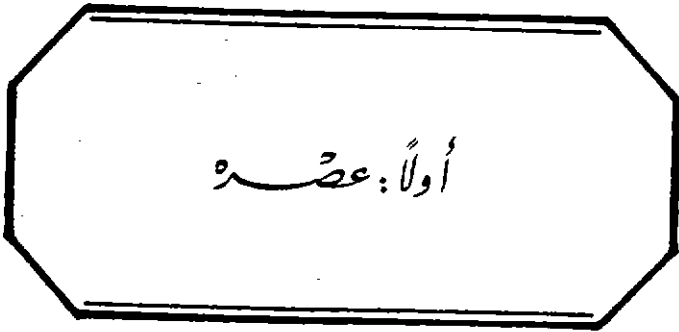 أولًا : عصْره